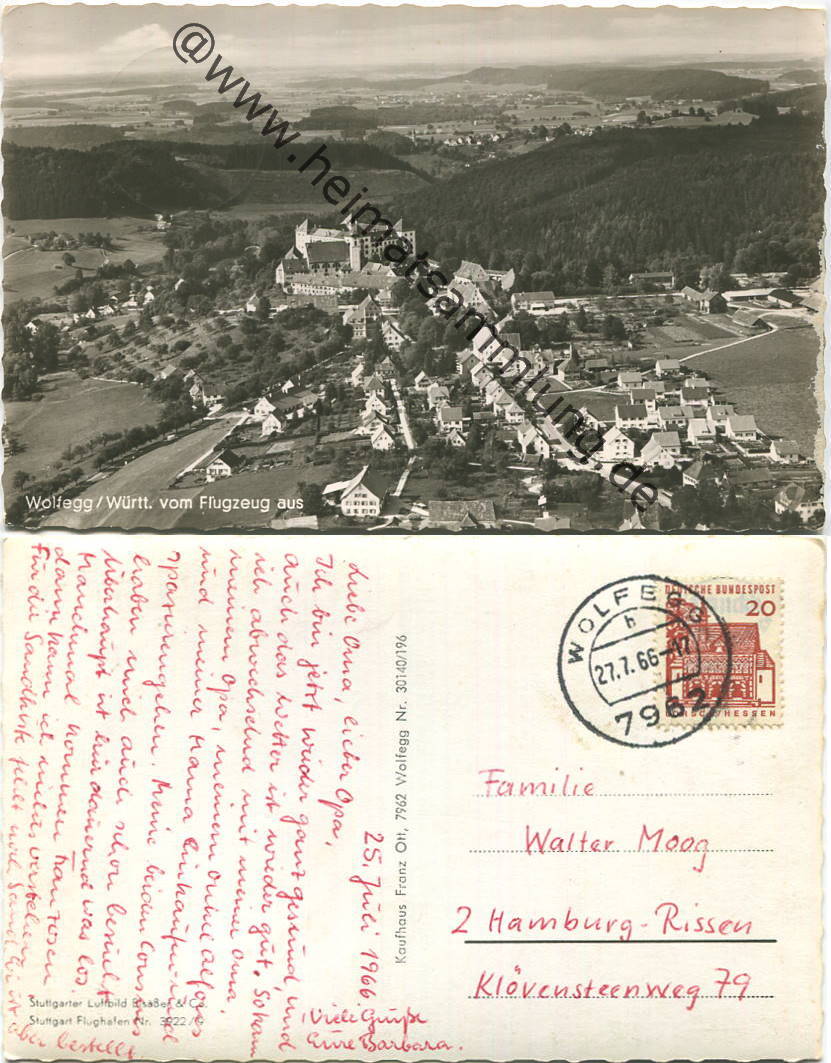 @www.heimatsammlung.de
Wolfegg/Württ. vom Flugzeug aus
25. Juli 1966
Liebe Oma, lieber Opa,
Ich bin jetzt wieder ganz gesund, und
auch das Wetter ist wieder gut. So kann
ich abwechselnd mit meiner Oma,
meinem Opa, meinem Onkel Alfons
und meiner Mama Einkaufen und
spazierengehen. Meine beiden Cousins
haben mich auch schon besucht.
Überhaupt ist hier dauernd was los.
Manchmal kommen Franzosen
dann kann ich nichts verstehen.
Für die Sandkiste fehlt noch Sand. Er ist
aber bestellt.
Viele Grüße
Eure Barbara.
Stuttgarter Luftbild Elsäßer & Co.
Stuttgart Flughafen Nr. 3922/9
Kaufhaus Franz Ott, 7962 Wolfegg Nr. 30140/196
DEUTSCHE BUNDESPOST
20
HESSEN
WOLFEGG
h
27.7.66-17
7962
Familie
Walter Moog
2 Hamburg-Rissen
Klövensteenweg 79